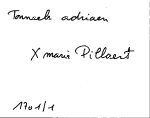 Tonnaele adriaen
X marie Pillaert
1701/1